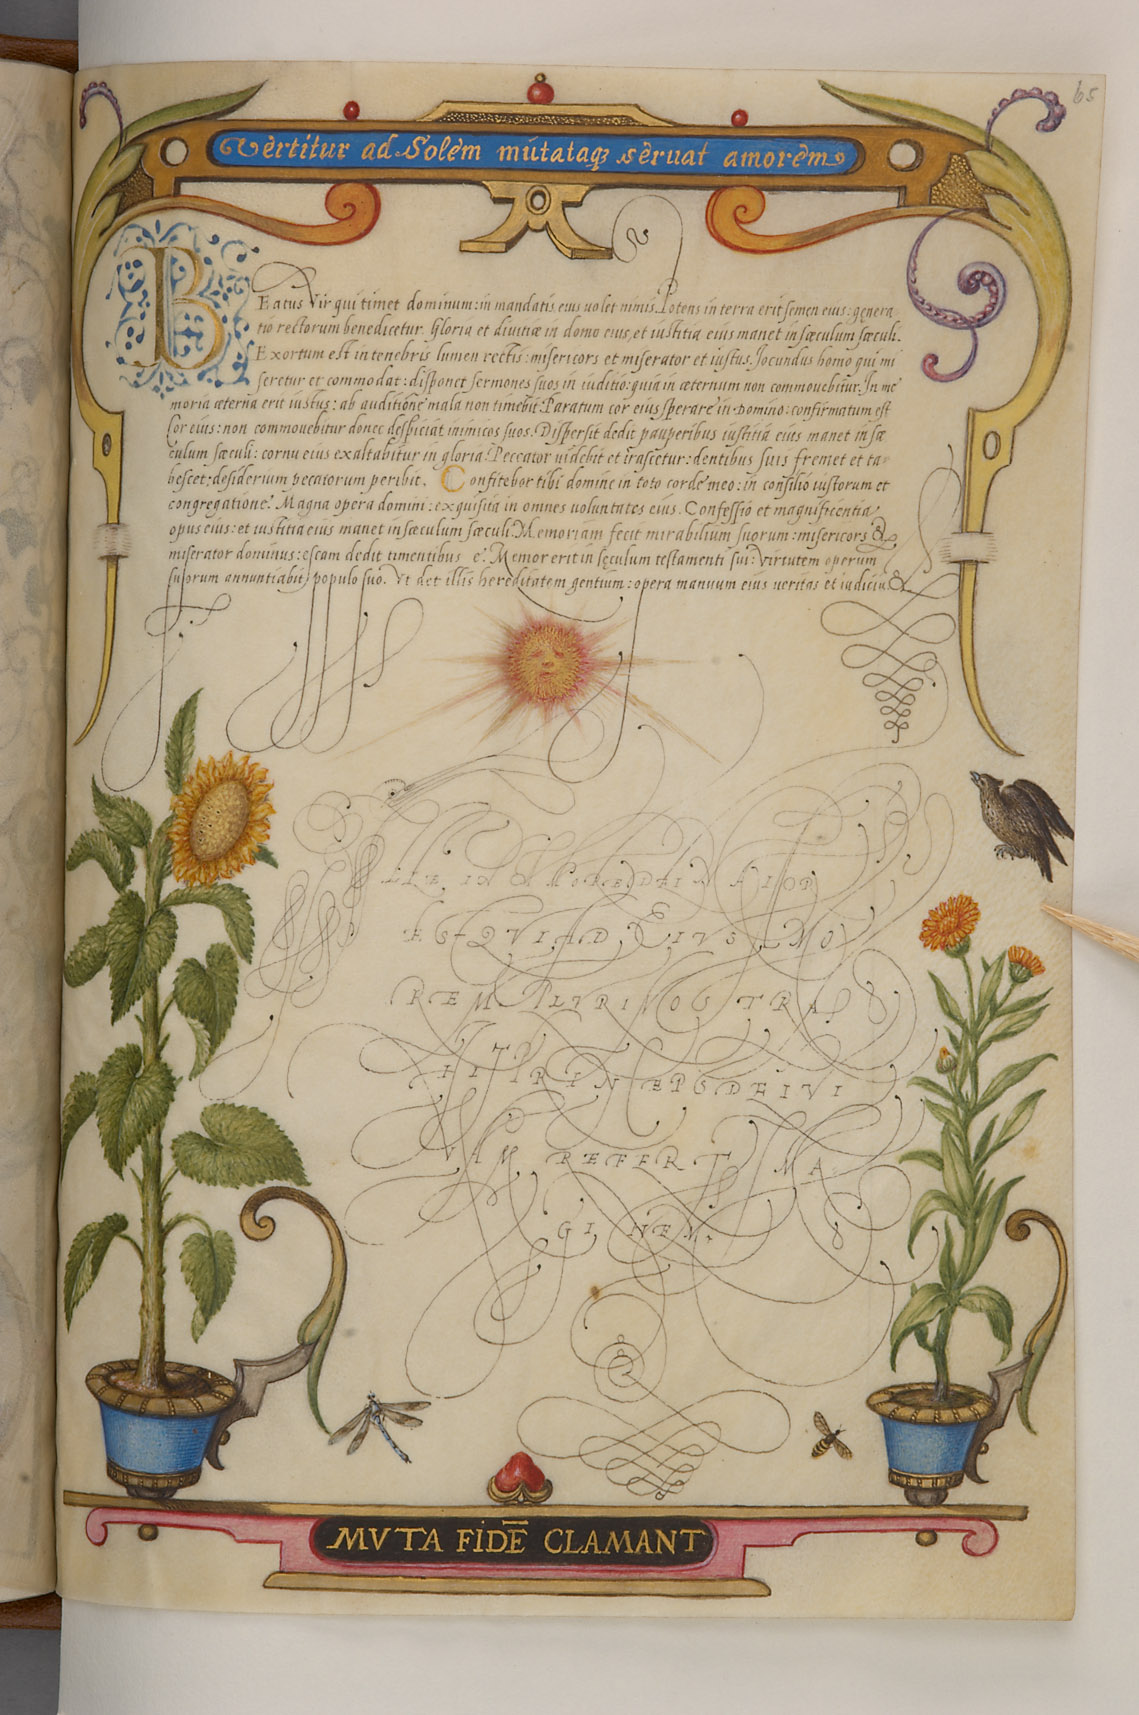 65
Vertitur ad Solem mutataq; servat amorem
BEatus Vir qui timet dominum: in mandatis eius volet nimis. Potens in terra erit semen eius: genera
tio rectorum benedicetur. Gloria et divitiæ in domo eius, et iustitia eius manet in sæculum sæculi.
Exortum est in tenebris lumen rectis: misericors et miserator et iustus. Jocundus homo qui mi
seretur et commodat: disponet sermones suos in iuditio: quia in æternum non commovebitur. In me
moria æterna erit iustus: ab auditione mala non timebit. Paratum cor eius sperare in Domino: confirmatum est
Cor eius: non commovebitur donec despiciat inimicos suos. Dispersit dedit pauperibus iustitia eius manet in sæ
culum sæculi: cornu eius exaltabitur in gloria. Peccator videbit et irascetur: dentibus suis fremet et ta
bescet: desiderium pecatorum peribit. Confitebor tibi domine in toto corde meo: in consilio iustorum et
congregatione. Magna opera domini: exquisita in omnes voluntates eius. Confessio et magnificentia
opus eius: et iustitia eius manet in sæculum sæculi. Memoriam fecit mirabilium suorum: misericors &
miserator dominus: escam dedit timentibus se. Memor erit in sęculum testamenti sui: virtutem operum
suorum annuntiabit populo suo. Vt det illis hereditatem gentium: opera manuum eius veritas et iudiciū &
REM
REFERT IMA
GINEM.
MVTA FIDĒ CLAMANT